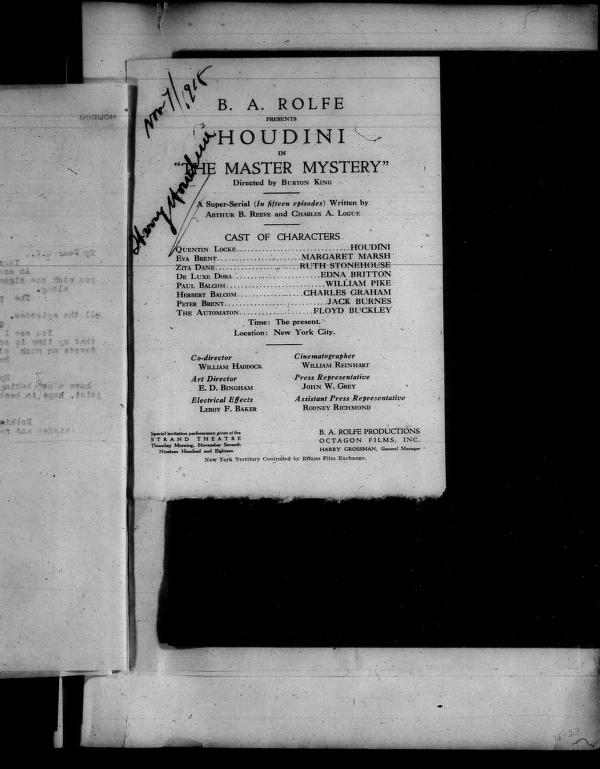 Nov 7/1918
Harry Houdini
B. A. ROLFE
PRESENTS
HOUDINI
IN
"THE MASTER MYSTERY"
Directed by BURTON KING
A Super-Serial (In fifteen episodes) Written by
ARTHUR B. REEVE and CHARLES A. LOGUE
CAST OF CHARACTERS
QUENTIN LOCKE....................HOUDINI
EVA BRENT....................MARGARET MARSH
ZITA DANE....................RUTH STONEHOUSE
DE LUXE DORA....................EDNA BRITTON
PAUL BALCOM....................WILLIAM PIKE
HERBERT BALCOM....................CHARLES GRAHAM
PETER BRENT....................JACK BURNES
THE AUTOMATON....................FLOYD BUCKLEY
Time: The present.
Location: New York City.
Co-director
WILLIAM HADDOCK
Art Director
E. D. BINGHAM
Electrical Effects
LEROY F. BAKER
Cinematographer
WILLIAM REINHART
Press Representative
JOHN W. GREY
Assistant Press Representative
RODNEY RICHMOND
Special invitation performance given at the
STRAND THEATRE
Thursday Morning, November Seventh
Nineteen Hundred and Eighteen
B. A. ROLFE PRODUCTIONS
OCTAGON FILMS, INC.
HARRY GROSSMAN, General Manager
New York Territory Controlled by Effano Film Exchange.
HOUDINI